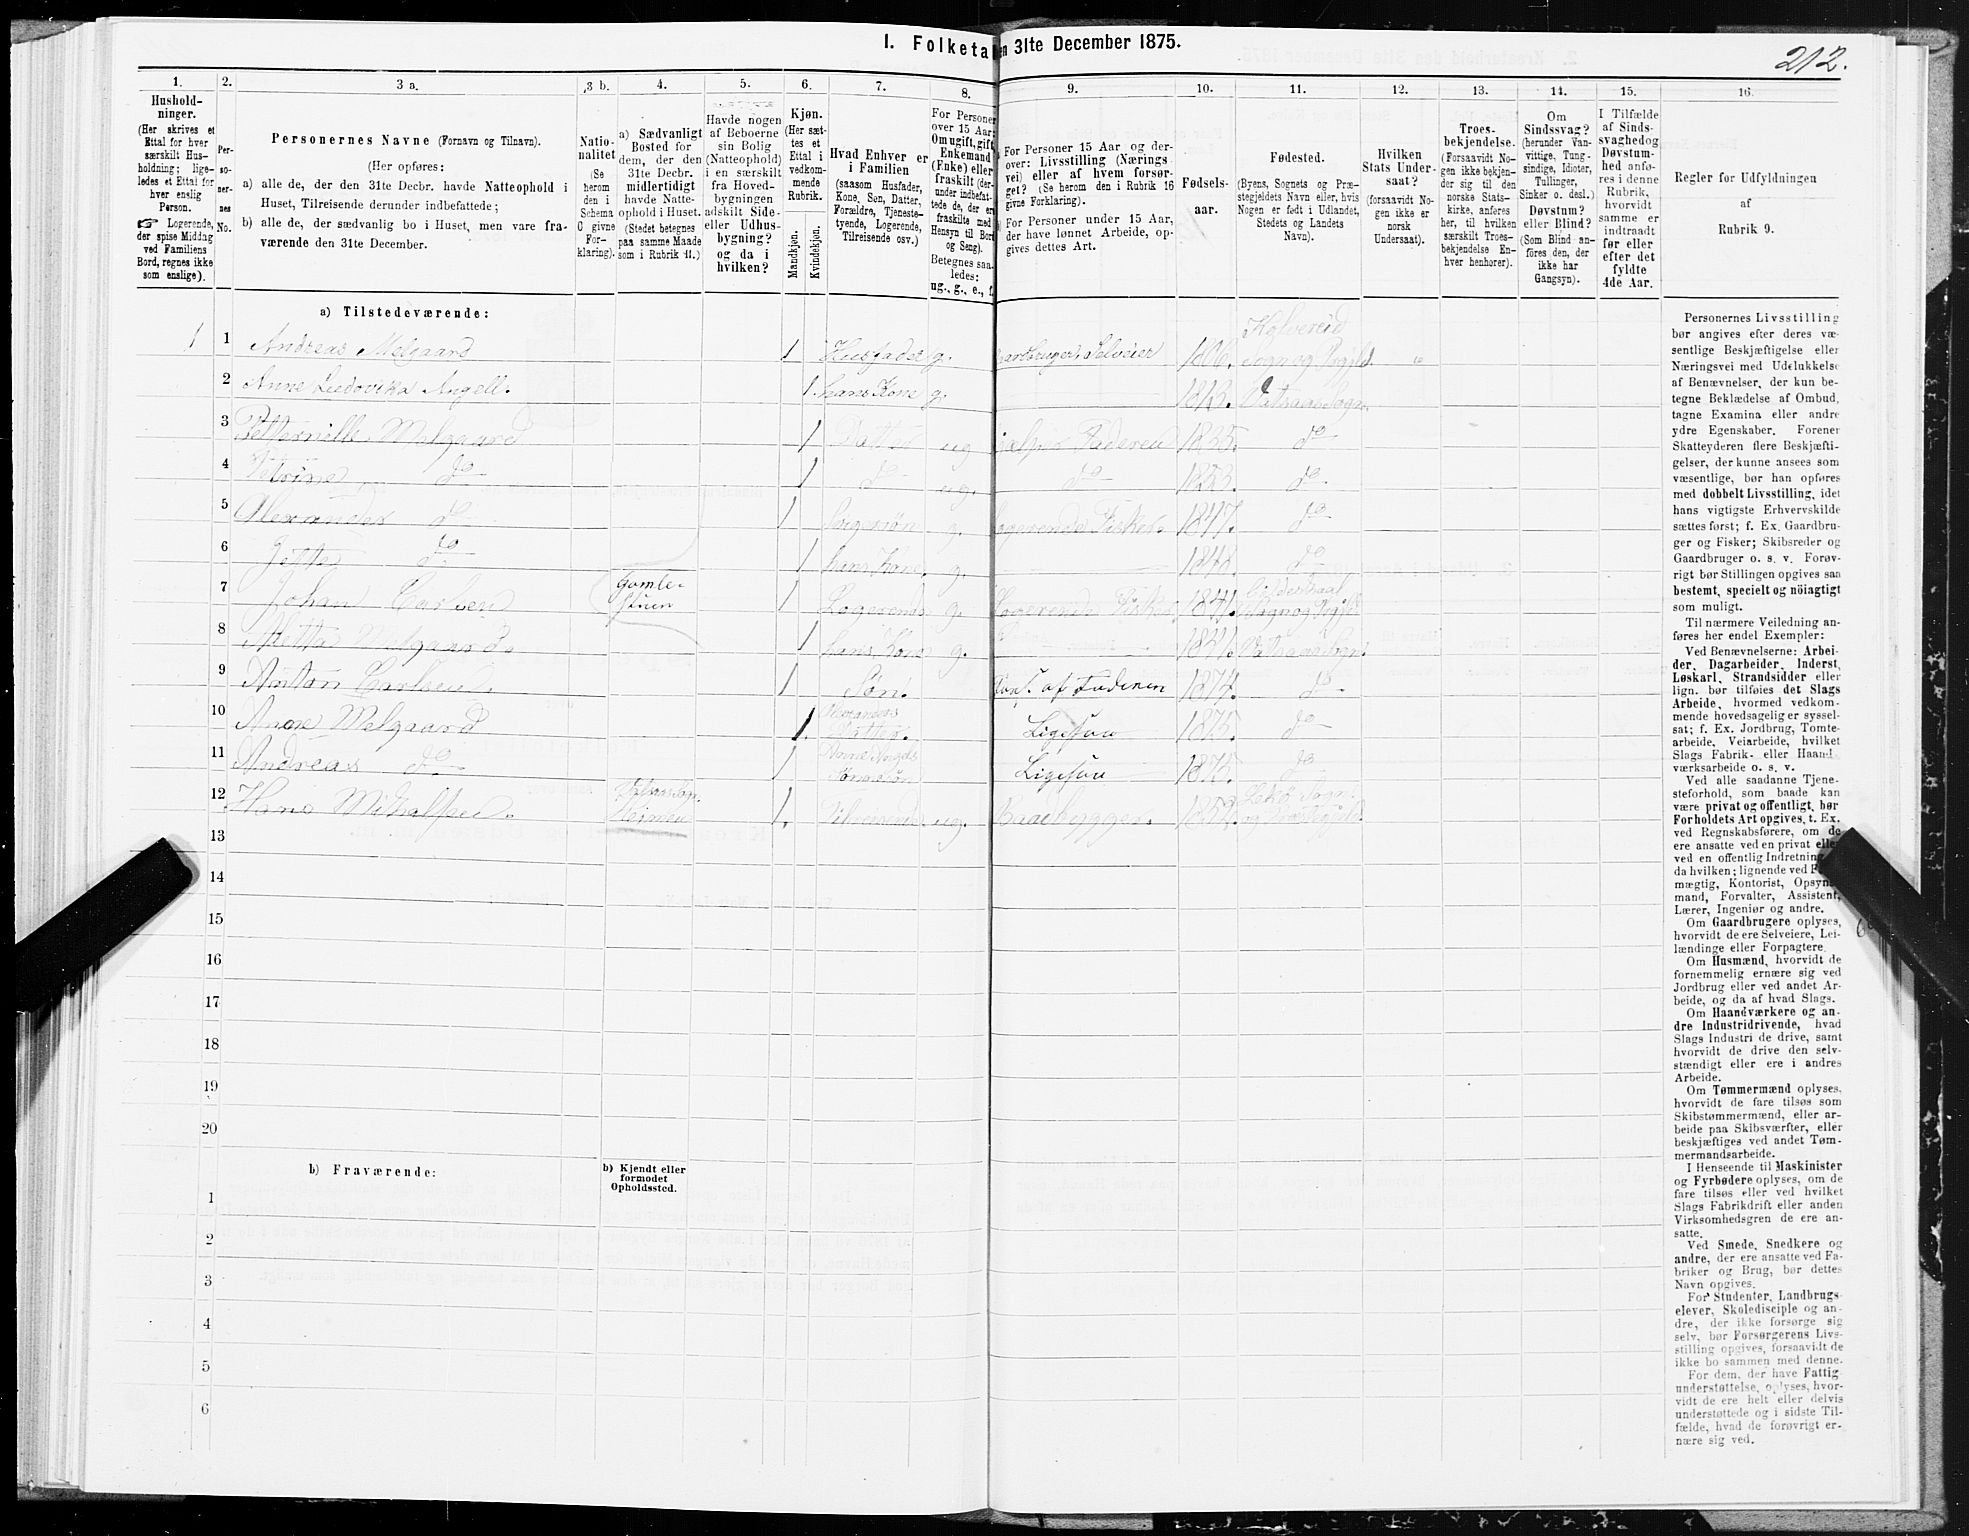 I. Folketa en 31te December 1875.
212.
1.
2.
3 a.
3 b.
4.
5.
6.
7.
8.
9.
10.
11.
12.
13.
14.
15.
16.
Hushold-
ninger.
(Her skrives et
Ettal for hver
særskilt Hus-
holdning; lige-
ledes et Ettal for
hver enslig
Person.
☞ Logerende,
der spise Middag
ved Familiens
Bord, regnes ikke
som enslige).
Per-
so-
ner-
nes
No.
Personernes Navne (Fornavn og Tilnavn).
(Her opføres:
a) alle de, der den 31te Decbr. havde Natteophold i
Huset, Tilreisende derunder indbefattede;
b) alle de, der sædvanlig bo i Huset, men vare fra-
værende den 31te December.
Natio-
nalitet
(Se
herom
den i
Schema
C givne
For-
klaring).
a) Sædvanligt
Bosted for
dem, der den
31te Decbr.
midlertidigt
havde Natte-
ophold i Huset.
(Stedet betegnes
paa samme Maade
som i Rubrik 11.)
Havde nogen
af Beboerne
sin Bolig
(Natteophold)
i en særskilt
fra Hoved-
bygningen
adskilt Side-
eller Udhus-
bygning?
og da i
hvilken?
Kjøn.
(Her sæt-
tes et
Ettal i
vedkom-
mende
Rubrik.
Mandkjøn.
Kvindekjøn.
Hvad Enhver er
i Familien
(saasom Husfader,
Kone, Søn, Datter,
Forældre, Tjeneste-
tyende, Logerende,
Tilreisende osv.)
For Personer
over 15 Aar:
Om ugift, gift,
Enkemand
(Enke) eller
fraskilt (der-
under indbefat-
tede de, der ere
fraskilte med
Hensyn til Bord
og Seng).
Betegnes saa-
ledes:
ug., g., e., f.
For Personer 15 Aar og der-
over: Livsstilling (Nærings
vei) eller af hvem forsør-
get? (Se herom den i Rubrik 16
givne Forklaring).
For Personer under 15 Aar,
der have lønnet Arbeide, op-
gives dettes Art.
Fødsels-
aar.
Fødested.
(Byens, Sognets og Præ-
stegjeldets Navn eller, hvis
Nogen er født i Udlandet,
Stedets og Landets
Navn).
Hvilken
Stats Under-
saat?
(forsaavidt No-
gen ikke er
norsk
Undersaat).
Troes-
bekjendelse.
(Forsaavidt No-
gen ikke bekjen-
der sig til den
norske Stats-
kirke, anføres
her, til hvilken
særskilt Troes-
bekjendelse En-
hver henhører).
Om
Sindssvag?
(herunder Van-
vittige, Tung-
sindige, Idioter,
Tullinger,
Sinker o. desl.)
Døvstum?
eller Blind?
(Som Blind an-
føres den, der
ikke har
Gangsyn).
I Tilfælde
af Sinds-
svaghed og
Døvstum-
hed anfø-
res i denne
Rubrik,
hvorvidt
samme er
indtraadt
før eller
efter det
fyldte
4de Aar.
Regler for Udfyldningen
af
Rubrik 9.
a) Tilstedeværende:
1 1 Andreas Melgaard 1 Husfader g. Gaardbruger, Selveier 1806. Kolvereid Sogn og Prgjeld.
2 Anne Ludovika Angell. 1 hans Kone g. 1813.
3 Melgaard 1 Datter ug Faderen 1835. do
4 do 1 do ug. do 1853. do
5 Alexander do 1 g. Logerende Fisker. 1847. do
6 do 1 hans Kone. g. 1848. do
7 Johan Carlsen Gamle- stuen 1 Logerende g. Logerende Fisker 1841. Sogn og
8 Melgaard. 1 hans Kone g. 1841.
9 Anton Carlsen. 1 Søn. af Faderen 1874. do
10 Anne Melgaard 1. Alexanders Datter. Ligesaa 1875. do
11 Andreas do 1 Sønnesøn Ligesaa 1875. do
12 Hans 1. Tilreisende ug. Baadbygger. Sogn
13
14
15
16
17
18
19
20
b) Fraværende:
b) Kjendt eller
formodet
Opholdssted.
1
2
3
4
5
6
Personernes Livsstilling
bør angives efter deres væ-
sentlige Beskjæftigelse eller
Næringsvei med Udelukkelse
af Benævnelser, der kun be-
tegne Beklædelse af Ombud,
tagne Examina eller andre
ydre Egenskaber. Forener
Skatteyderen flere Beskjæfti-
gelser, der kunne ansees som
væsentlige, bør han opføres
med dobbelt Livsstilling, idet
hans vigtigste Erhvervskilde
sættes først; f. Ex. Gaardbru-
ger og Fisker; Skibsreder og
Gaardbruger o. s. v. Forøv-
rigt bør Stillingen opgives saa
bestemt, specielt og nöiagtigt
som muligt.
Til nærmere Veiledning an-
føres her endel Exempler:
Ved Benævnelserne: Arbei-
der, Dagarbeider, Inderst,
Løskarl, Strandsidder eller
lign. bør tilføies det Slags
Arbeide, hvormed vedkom-
mende hovedsagelig er syssel-
sat; f. Ex. Jordbrug, Tomte-
arbeide, Veiarbeide, hvilket
Slags Fabrik- eller Haand-
værksarbeide o. s. v.
Ved alle saadanne Tjene-
steforhold, som baade kan
være privat og offentligt, bør
Forholdets Art opgives, t. Ex.
ved Regnskabsførere, om de
ere ansatte ved en privat eller
ved en offentlig Indretning
da hvilken; lignende ved
mægtig, Kontorist, Opsyns-
mand, Forvalter, Assistent,
Lærer, Ingeniør og andre.
Om Gaardbrugere oplyses,
hvorvidt de ere Selveiere, Lei-
lændinge eller Forpagtere.
Om Husmænd, hvorvidt de
fornemmelig ernære sig ved
Jordbrug eller ved andet Ar-
beide, og da af hvad Slags.
Om Haandværkere og an-
dre Industridrivende, hvad
Slags Industri de drive, samt
hvorvidt de drive den selv-
stændigt eller ere i andres
Arbeide.
Om Tømmermænd oplyses,
hvorvidt de fare tilsøs som
Skibstømmermænd, eller ar-
beide paa Skibsværfter, eller
beskjæftiges ved andet Tøm-
mermandsarbeide.
I Henseende til Maskinister
og Fyrbødere oplyses, om de
fare tilsøs eller ved hvilket
Slags Fabrikdrift eller anden
Virksomhedsgren de ere an-
satte.
Ved Smede, Snedkere og
andre, der ere ansatte ved Fa-
briker og Brug, bør dettes
Navn opgives.
For Studenter, Landbrugs-
elever, Skoledisciple og an-
dre, der ikke forsørge sig
selv, bør Forsørgerens Livs-
stilling opgives, forsaavidt de
ikke bo sammen med denne.
For dem, der have Fattig-
understøttelse, oplyses, hvor-
vidt de ere helt eller delvis
understøttede og i sidste Til-
fælde, hvad de forøvrigt er-
nære sig ved.